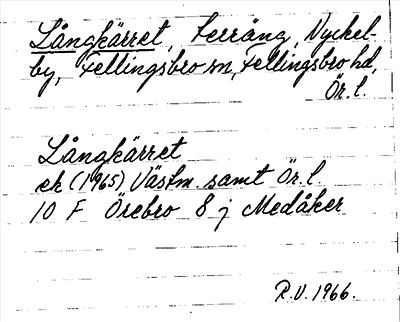 Långkärret, terräng, Nyckel-
by, Fellingsbro sn, Fellingsbro hd,
Ör. l.
Långkärret
ek (1965) Västm. samt Ör. l.
10 F Örebro 8 j Medåker
R.V. 1966.